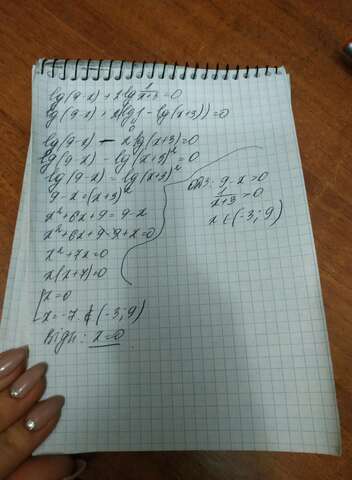 lg(9-x)+2lg 1/(x+3)=0
lg(9-x)+2(lg1-lg(x+3))=0
0
lg(9-x)-2lg(x+3)=0
lg(9-x)-lg(x+3)²=0
lg(9-x)=lg(x+3)²
9-x=(x+3)²
x²+6x+9=9-x
x²+6x+9-9+x=0
x²+7x=0
x(x+7)=0
[x=0
x=-7∉(-3;9)
Відп: x=0
ОДЗ: 9-x>0
1/(x+3)>0
x∈(-3;9)